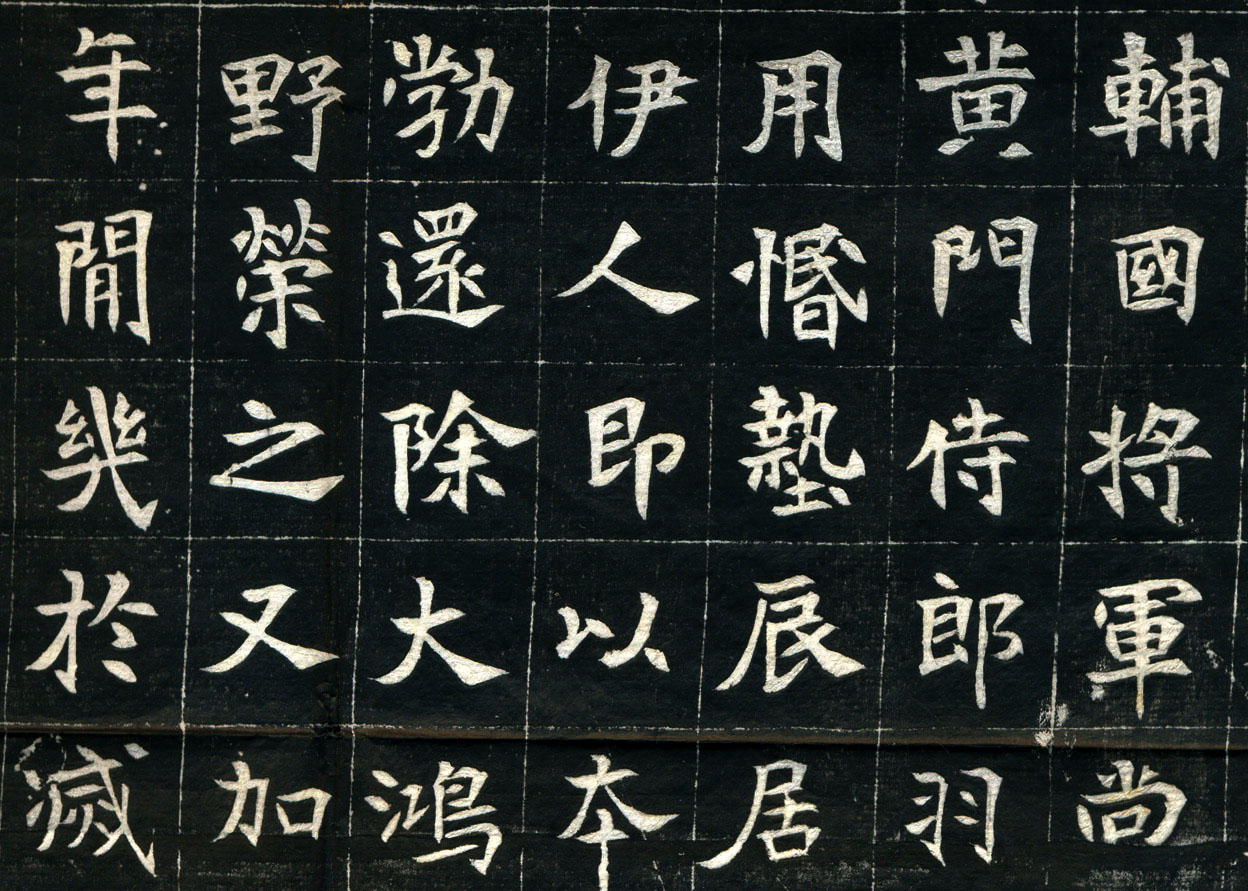 輔國將軍尚
黄門侍郎羽
用惽墊辰居
伊人即以夲
勃還除大鴻
野榮之又加
年閒幾於滅